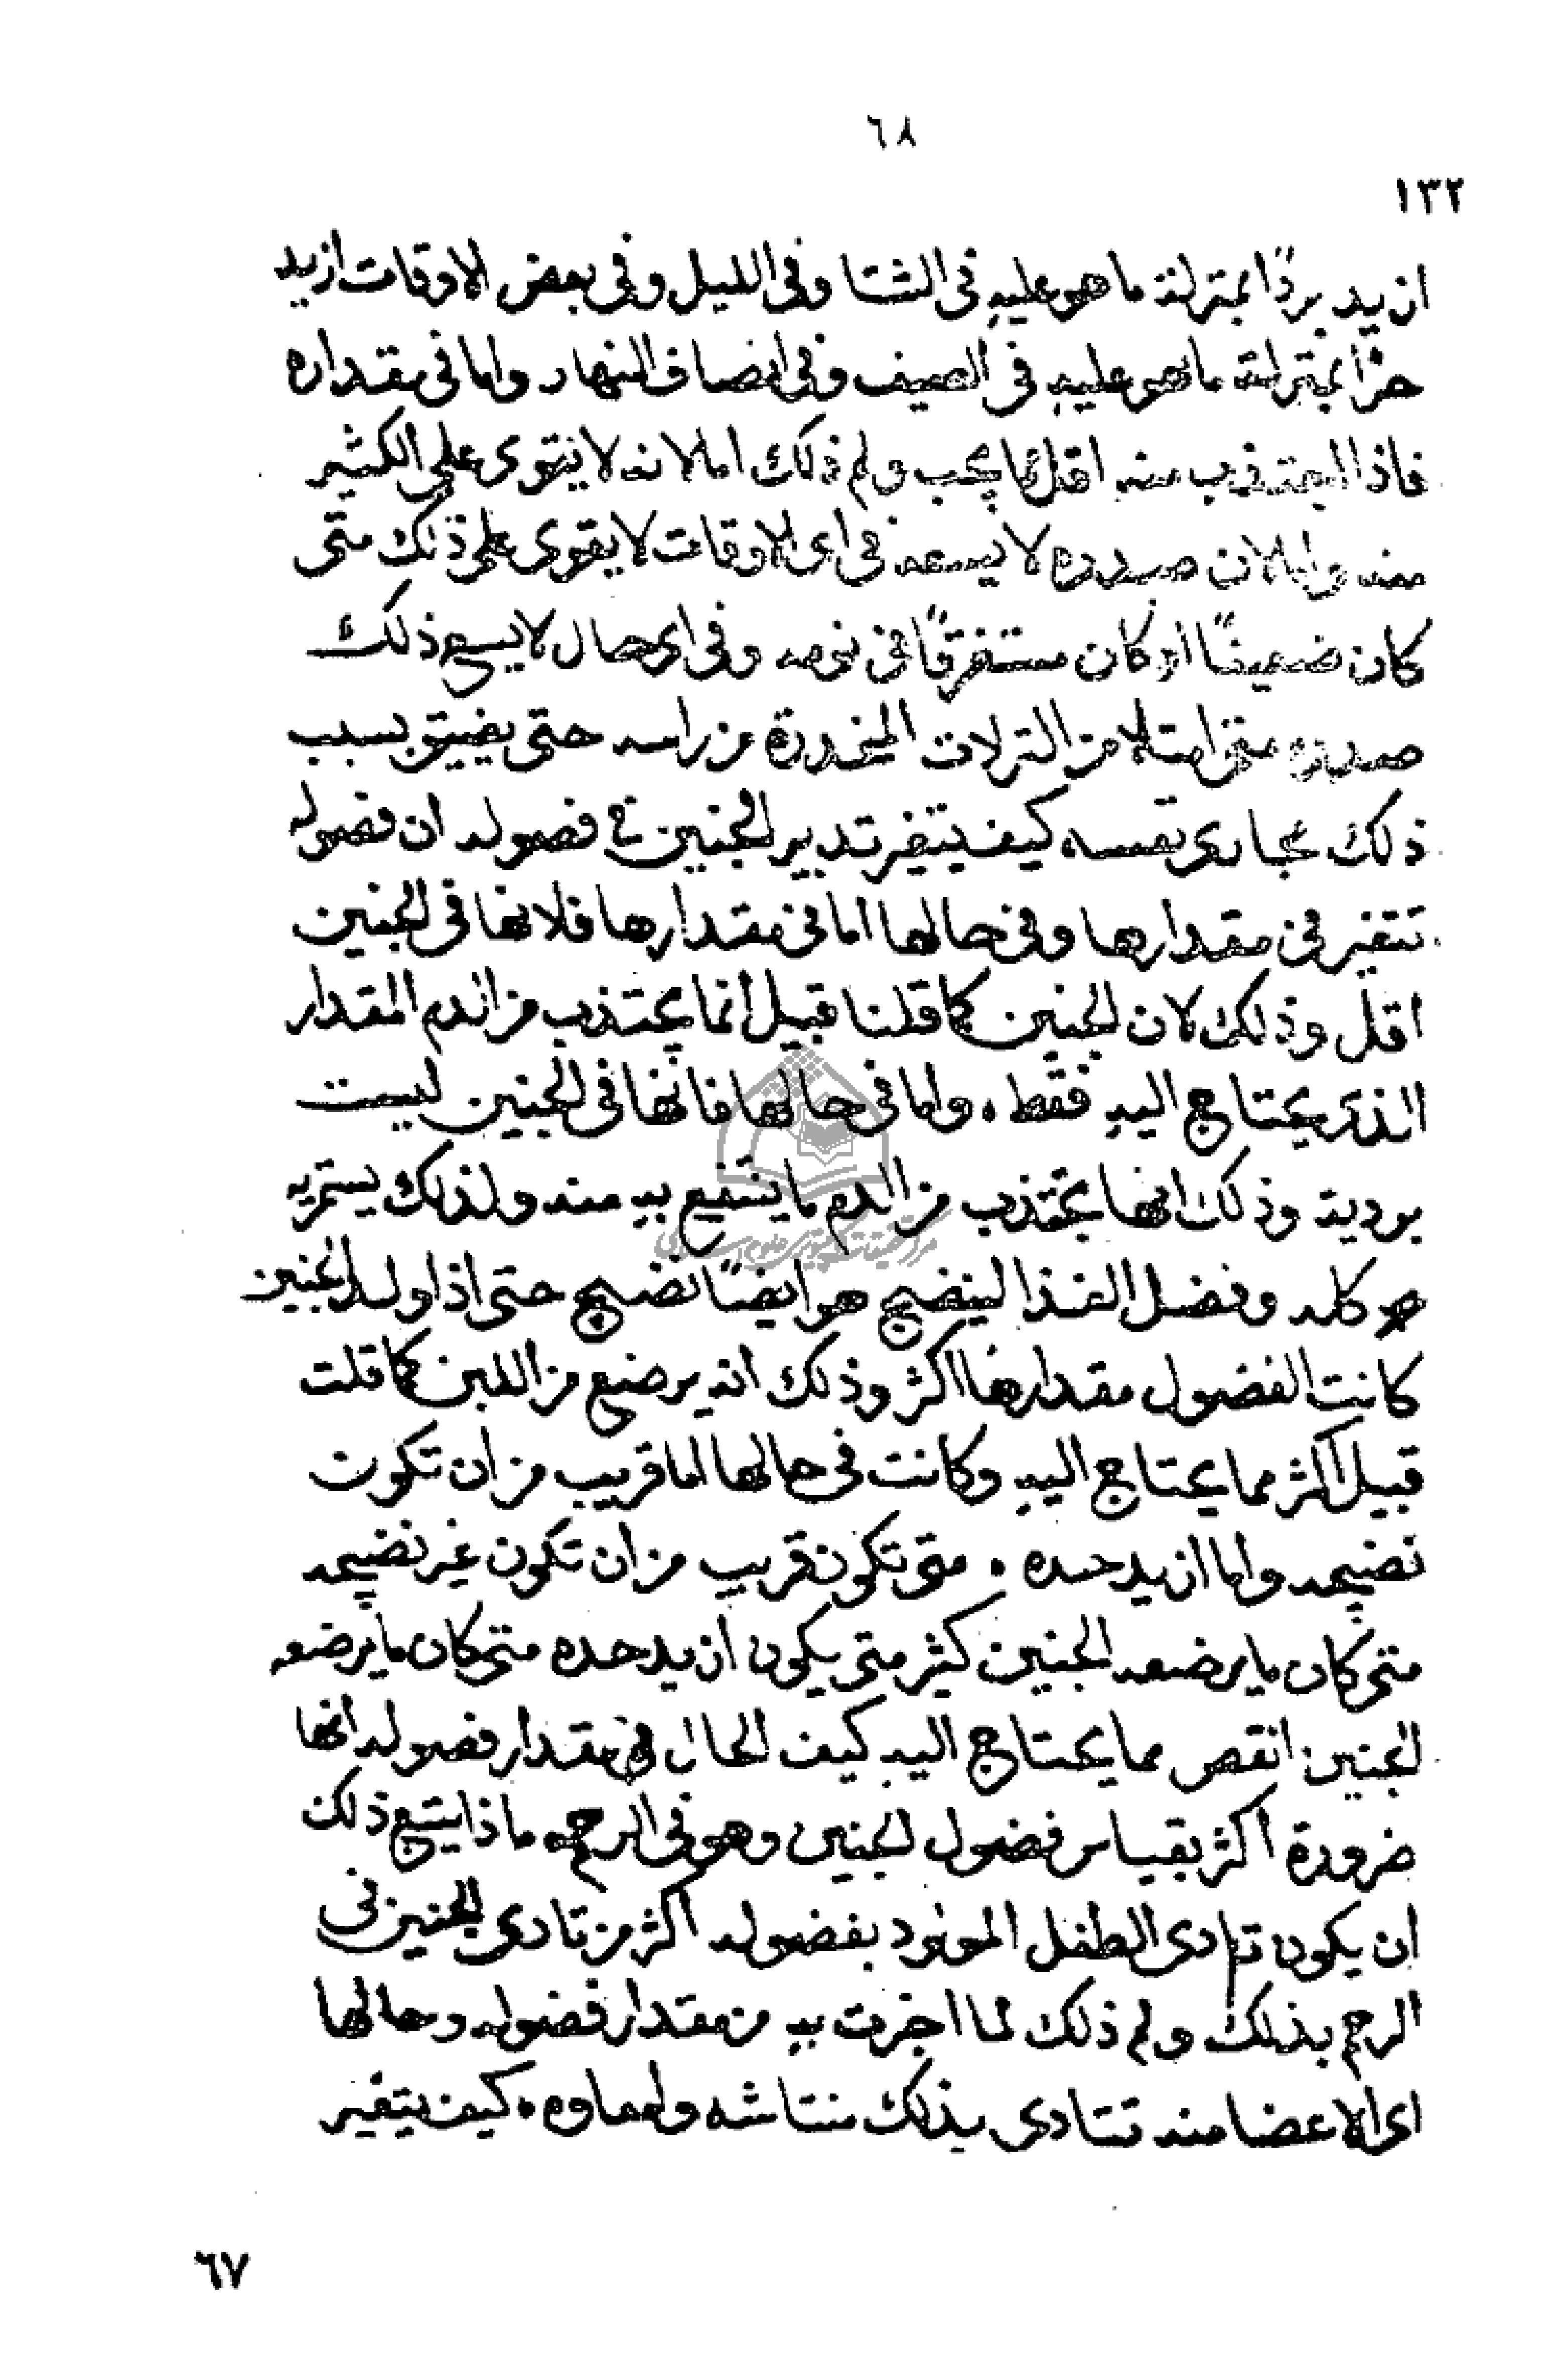 ٦٨
١٣٢
ازيد بردًا بمنزلة ما هو عليه فى الشتا وفى الليل وفى بعض الاوقات ازيد
حرًا بمنزلة ما هو عليه فى الصيف وفى انصاف النهار واما فى مقداره
فاذا اجتذب منه اقل مما يجب ولم ذلك اما لانه لا يقوى على الكثير
منه واما لان صدره لا يسعه فى اى الاوقات لا يقوى على ذلك متى
كان ضعيفًا او كان مستغرقًا فى نومه وفى اى حال لا يسع ذلك
صدره متى امتلا من النزلات المنحدرة من راسه حتى يضيق بسبب
ذلك مجارى نفسه كيف يتغير تدبير الجنين فى فضوله ان فضوله
تتغير فى مقدارها وفى حالها اما فى مقدارها فلانها فى الجنين
اقل وذلك لان الجنين كما قلنا قبيل انما يجتذب من الدم المقدار
الذى يحتاج اليه فقط. واما فى حالها فانها فى الجنين ليست
بردية وذلك انها تجتذب من الدم ما ينتفع به منه ولذلك يستمريه
كله وفضل الغذا لينضج هو ايضًا نضيج حتى اذا ولد الجنين
كانت الفضول مقدارها اكثر وذلك انه يرضع من اللبن كما قلت
قبيل اكثر مما يحتاج اليه وكانت فى حالها اما قريب من ان تكون
نضيجه واما ازيد حده . متى تكون قريب من ان تكون غير نضيجه
متى كان ما يرضعه الجنين كثير متى يكون ازيد حده متى كان ما يرضعه
الجنين انقص مما يحتاج اليه كيف الحال فى مقدار فضوله انها
ضرورة اكثر بقياس فضول الجنين وهو فى الرحم. ماذا يتبع ذلك
ان يكون تادى الطفل المولود بفضوله اكثر من تادى الجنين فى
الرحم بذلك ولم ذلك لما اخبرت به من مقدار فضوله وحالها
اى الاعضا منه تتادى بذلك مثانته وامعاوه. كيف يتغير
٦٧